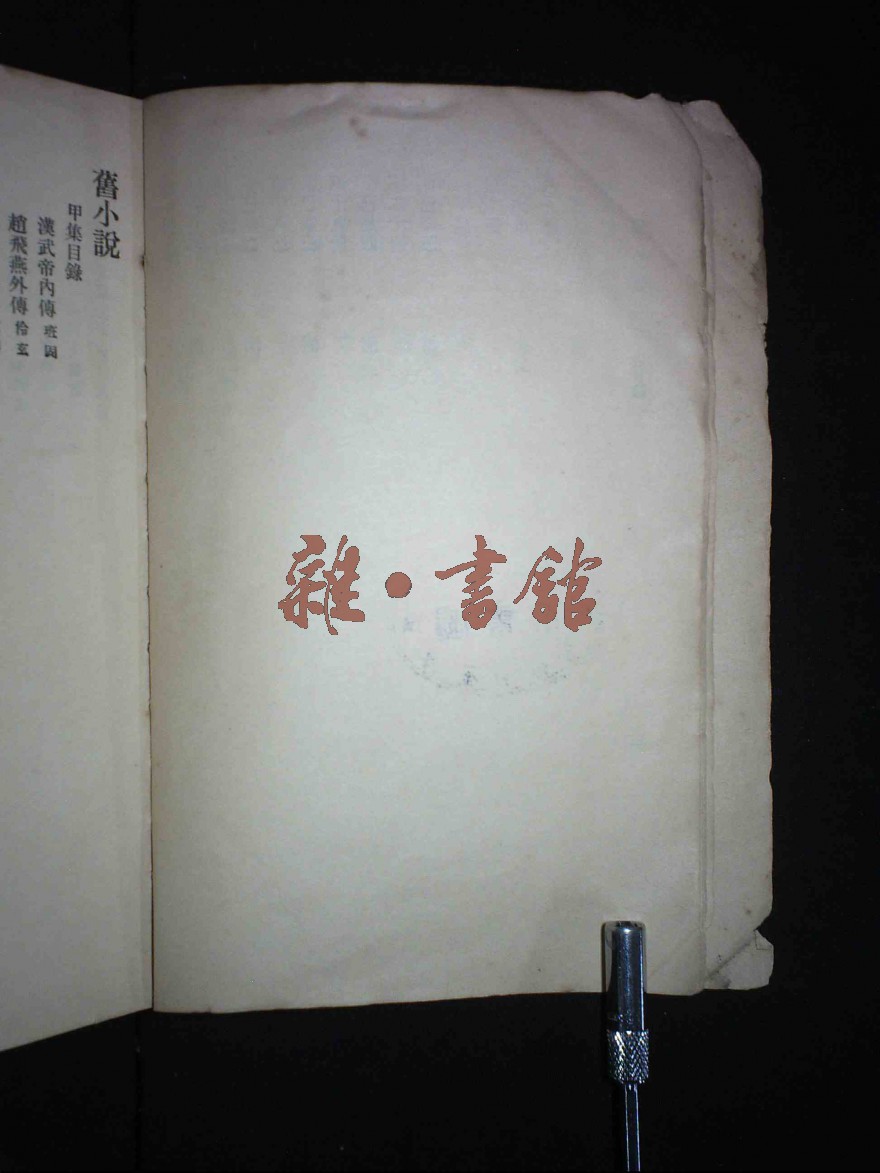 舊小說
甲集目錄
漢武帝內傳 班固
趙飛燕外傳 伶玄
雜·書館